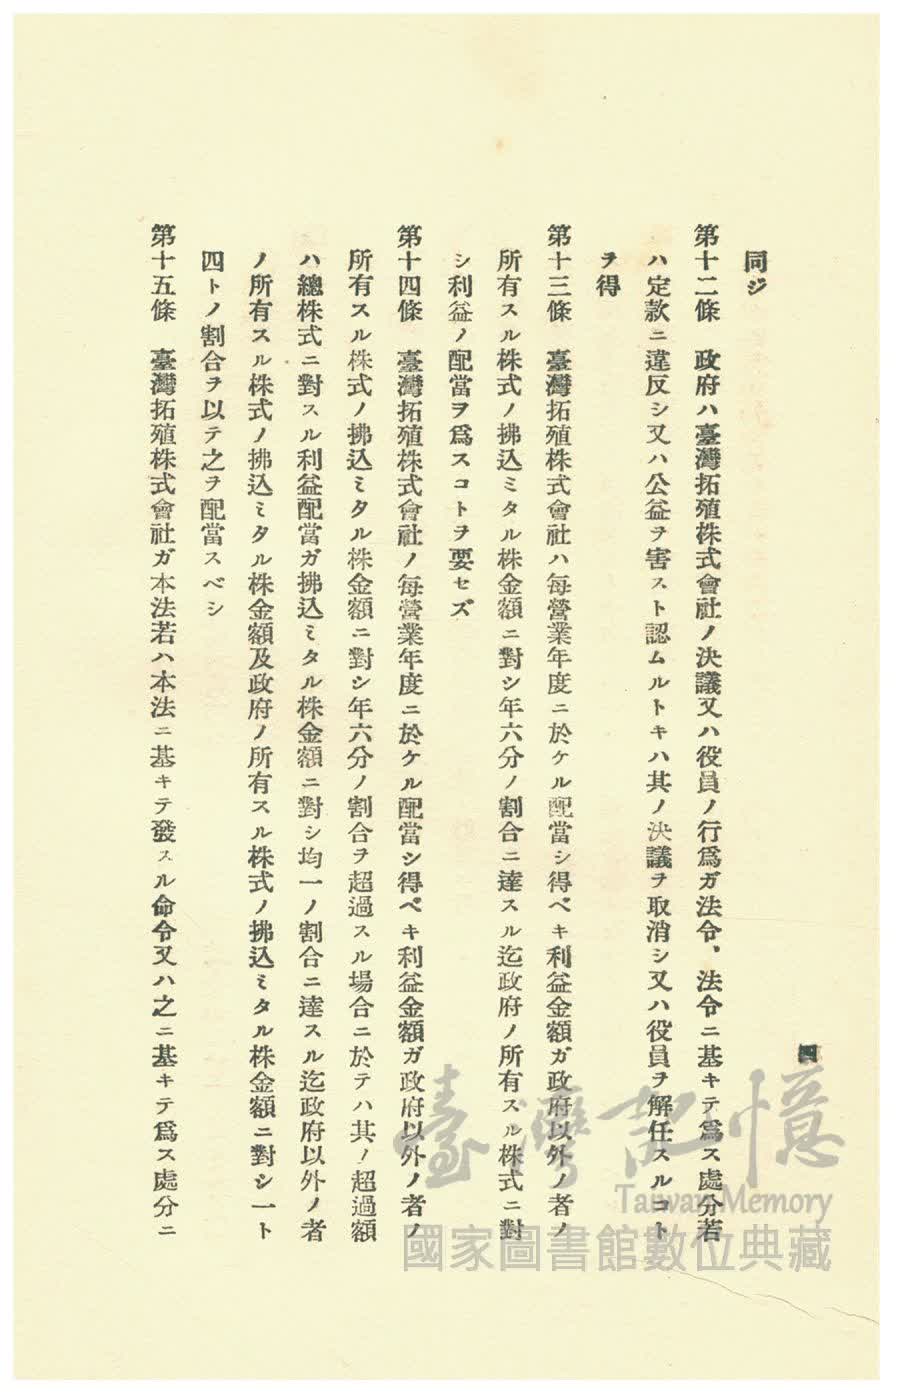 同ジ
第十二條　政府ハ臺灣拓殖株式會社ノ決議又ハ役員ノ行爲ガ法令、法令ニ基キテ爲ス處分若
ハ定款ニ違反シ又ハ公益ヲ害スト認ムルトキハ其ノ決議ヲ取消シ又ハ役員ヲ解任スルコト
ヲ得
第十三條　臺灣拓殖株式會社ハ每營業年度ニ於ケル配當シ得ベキ利益金額ガ政府以外ノ者ノ
所有スル株式ノ拂込ミタル株金額ニ對シ年六分ノ割合ニ達スル迄政府ノ所有スル株式ニ對
シ利益ノ配當ヲ爲スコトヲ要セズ
第十四條　臺灣拓殖株式會社ノ每營業年度ニ於ケル配當シ得ベキ利益金額ガ政府以外ノ者ノ
所有スル株式ノ拂込ミタル株金額ニ對シ年六分ノ割合ヲ超過スル場合ニ於テハ其ノ超過額
ハ總株式ニ對スル利益配當ガ拂込ミタル株金額ニ對シ均一ノ割合ニ達スル迄政府以外ノ者
ノ所有スル株式ノ拂込ミタル株金額及政府ノ所有スル株式ノ拂込ミタル株金額ニ對シ一ト
四トノ割合ヲ以テ之ヲ配當スベシ
第十五條　臺灣拓殖株式會社ガ本法若ハ本法ニ基キテ發スル命令又ハ之ニ基キテ爲ス處分ニ
四
臺灣記憶
Taiwan Memory
國家圖書館數位典藏